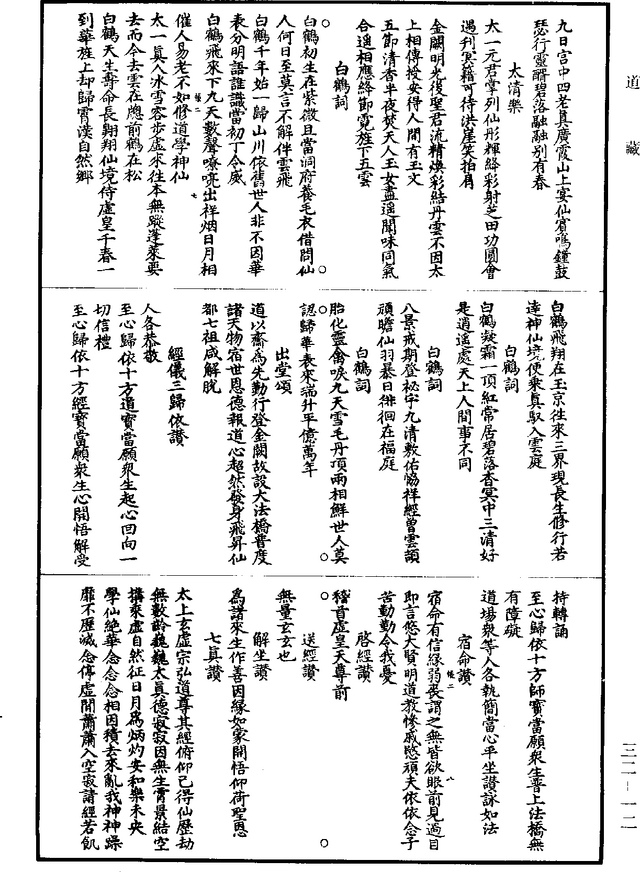 道藏
九日宫中四老真廣霞山上宴仙賓鳴鐘鼓
瑟行靈醑碧落融融别有春
太清樂
太一元君掌列仙彤輝絳彩射芝田功圓會
遇刊冥籍可待洪崖笑拍肩
金闕明光後聖君流精煥彩結丹雲不因太
上相傳授安得人間有玉文
五節清香半夜焚天人玉女盡遥聞味同氣
合遥相應絳節霓旌下五雲
白鶴詞
白鶴初生在紫微且當洞府養毛衣借問仙
人何日至莫言不解伴雲飛
白鶴千年始一歸山川依舊世人非不因華
表分明語誰識當初丁令威
白鶴飛來下九天數聲嘹喨出祥烟日月相
催人易老不如修道學神仙
太一真人冰雪容步虚來往本無蹤蓬萊要
去而今去雲在總前鶴在松
白鶴天生壽命長翱翔仙境侍虚皇千春一
到華旌上却歸霄漢自然鄉
白鶴飛翔在玉京往來三界現長生修行若
達神仙境便乘真馭入雲庭
白鶴詞
白鶴凝霜一頂紅常居碧落杳冥中三清好
是逍遥處天上人間事不同
白鶴詞
八景戒期登祕宇九清敷佑協祥經曾雲頷
頑瞻仙羽暮日徘徊在福庭
白鶴詞
胎化靈禽唳九天雪毛丹頂兩相鮮世人莫
認歸華表來瑞升平億萬年
出堂頌
道以齋為先勤行登金闕故設大法橋普度
諸天物宿世恩德報道心超然發身飛昇仙
都七祖咸解脱
經儀三歸依讚
人各恭敬
至心歸依十方道寶當願衆生起心回向一
切信禮
至心歸依十方經寶當願衆生心開悟解受
持轉誦
至心歸依十方師寶當願衆生普上法橋無
有障礙
道場衆等人各執簡當心平坐讚詠如法
宿命讚
宿命有信緣弱喪謂之無皆欲眼前見過目
即言悠大賢明道教慘慼愍頑夫依依念子
苦勤勤令我憂
啓經讚
稽首虚皇天尊前
送經讚
無量玄玄也
解坐讚
為諸來生作善因緣如蒙開悟仰荷聖恩
七真讚
太上玄虚宗弘道尊其經俯仰已得仙歷劫
無數齡巍巍太真德寂寂因無生霄景結空
搆乘虚自然征日月為炳灼安和樂未央
學仙絶華念念念相因積去來亂我神神躁
靡不歷滅念停虚閒蕭蕭入空寂請經若飢
三二—一二